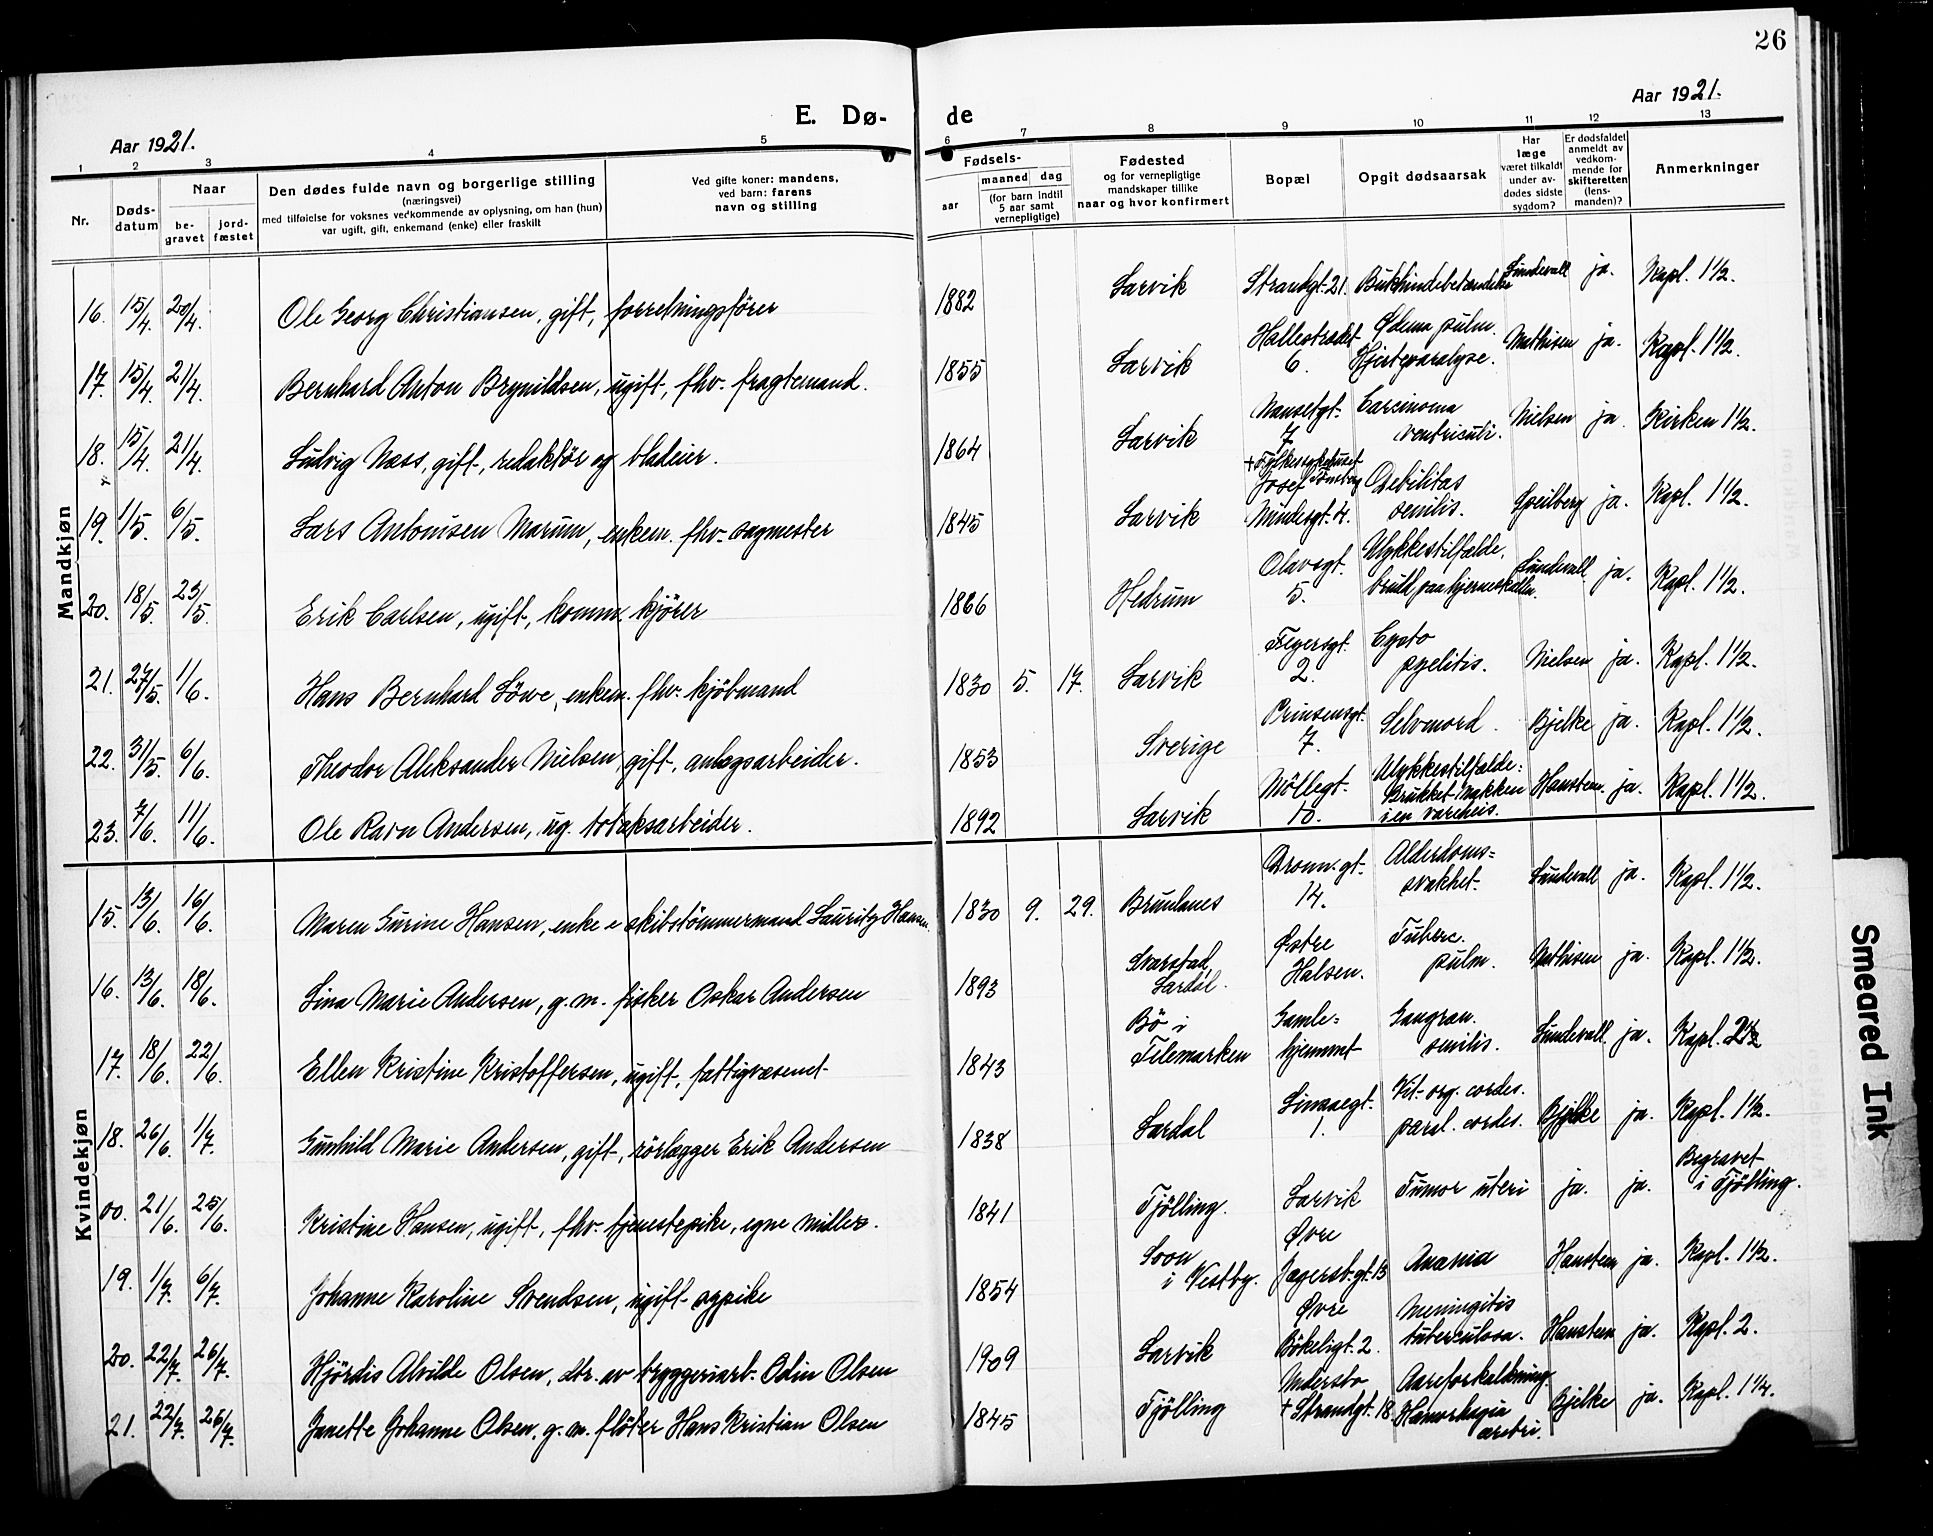 26
Aar 1921.
E. Dø-
de
Aar 1921.
1 2 3 4 5 6 7 8 9 10 11 12 13
Nr.
Døds-
datum
Naar
be-
gravet
jord-
fæstet
Den dødes fulde navn og borgerlige stilling
(næringsvei)
med tilføielse for voksnes vedkommende av oplysning, om han (hun)
var ugift, gift, enkemand (enke) eller fraskilt
Ved gifte koner: mandens,
ved barn: farens
navn og stilling
Fødsels-
aar
maaned
dag
(for barn indtil
5 aar samt
vernepligtige)
Fødested
og for vernepligtige
mandskaper tillike
naar og hvor konfirmert
Bopæl
Opgit dødsaarsak
Har
læge
været tilkaldt
under av-
dødes sidste
sygdom?
Er dødsfaldet
anmeldt av
vedkom-
mende for
skifteretten
(lens-
manden)?
Anmerkninger
Mandkjøn
16. 15/4. 20/4. Ole Georg Christiansen, gift, forretningsfører 1882 Larvik Strandgt. 21. Bukhindebetændelse Sundevall ja. Kapl. 1 1/2.
17. 15/4. 21/4. Bernhard Anton Brynildsen, ugift, fhv. fragtemand. 1855 Larvik Hallestredet 6. Ødema pulm. Hjerteparalyse. Mathisen ja. Kapl. 1 1/2.
18. 15/4. 21/4. Ludvig Næss, gift, redaktør og bladeier. 1864 Larvik Nansetgt. 7 + Fylkessykehuset Tønsberg Carcinoma ventriculi. Nielsen ja Kirken 1 1/2.
19. 1/5. 6/5. Lars Antonisen Marum, enkem. fhv. sagmester 1845 Larvik Josef Mindesgt. 4. Debilitas senilis. Speilberg ja. Kapl. 1 1/2.
20. 18/5. 23/5. Erik Carlsen, ugift, komm. kjører 1866 Hedrum Olavsgt. 5. Ulykkestilfælde, brudd paa hjerneskallen. Sundevall ja. Kapl. 1 1/2.
21. 27/5. 1/6. Hans Bernhard Löwe, enkem. fhv. kjöbmand 1830 5. 17. Larvik Feyersgt. 2. Cysto pyelitis. Nielsen ja. Kapl. 1 1/2.
22. 31/5. 6/6. Theodor Aleksander Nielsen, gift, anlægsarbeider. 1853 Sverige Prinsensgt. 7. Selvmord. Bjelke ja. Kapl. 1 1/2.
23. 7/6. 11/6. Ole Ravn Andersen, ug. tobaksarbeider. 1892 Larvik Möllegt. 10. Ulykkestilfælde: Brukket Nakken i en vareheis. Hanstem ja. Kapl. 1 1/2.
Kvindekjøn
15. 13/6. 16/6. Maren Gurine Hansen, enke e skibstömmermand Lauritz Hansen. 1830 9. 29. Brunlanes Dronn. gt. 14. Alderdoms= svakhet. Sundevall ja. Kapl. 1 1/2.
16. 13/6. 18/6. Lina Marie Andersen, g. m. fisker Oskar Andersen 1893 Svarstad, Lardal. Østre Halsen. Tuberc. pulm. Mathisen ja. Kapl. 1 1/2.
17. 18/6. 22/6. Ellen Kristine Kristoffersen, ugift, fattigvæsenet 1843 Bö i Telemarken Gamle= hjemmet Gangræn. senilis. Sundevall ja. Kapl.
18. 26/6. 1/7. Gunhild Marie Andersen, gift, rörlægger Erik Andersen 1838 Lardal 1. Vit. org. cordis. paral. cordis. Bjelke ja. Kapl. 1 1/2.
00. 21/6. 25/6. Kristine Hansen, ugift, fhv. tjenestepike, egne midler. 1841 Tjölling. Larvik Tumor uteri ja. ja. Begravet i Tjölling.
19. 1/7. 6/7. Johanne Karoline Svendsen, ugift sypike 1854 Soon i Vestby. Øvre Jegersb. gt. 13 Anæmia Hanstem ja. Kapl. 1 1/2.
20. 22/7. 26/7. Hjördis Alvilde Olsen, dtr. av bryggeriarb. Odin Olsen 1909 Larvik Øvre Bökeligt. 2. Meningitis tuberculosa. Hanstem ja. Kapl. 2.
21. 22/7. 26/7. Janette Johanne Olsen, g. m. fløter Hans Kristian Olsen 1845 Tjölling Undersbo + Strandgt. 18. Aareforkalkning. Bjelke ja. Kapl. 1 1/4.
Smeared Ink